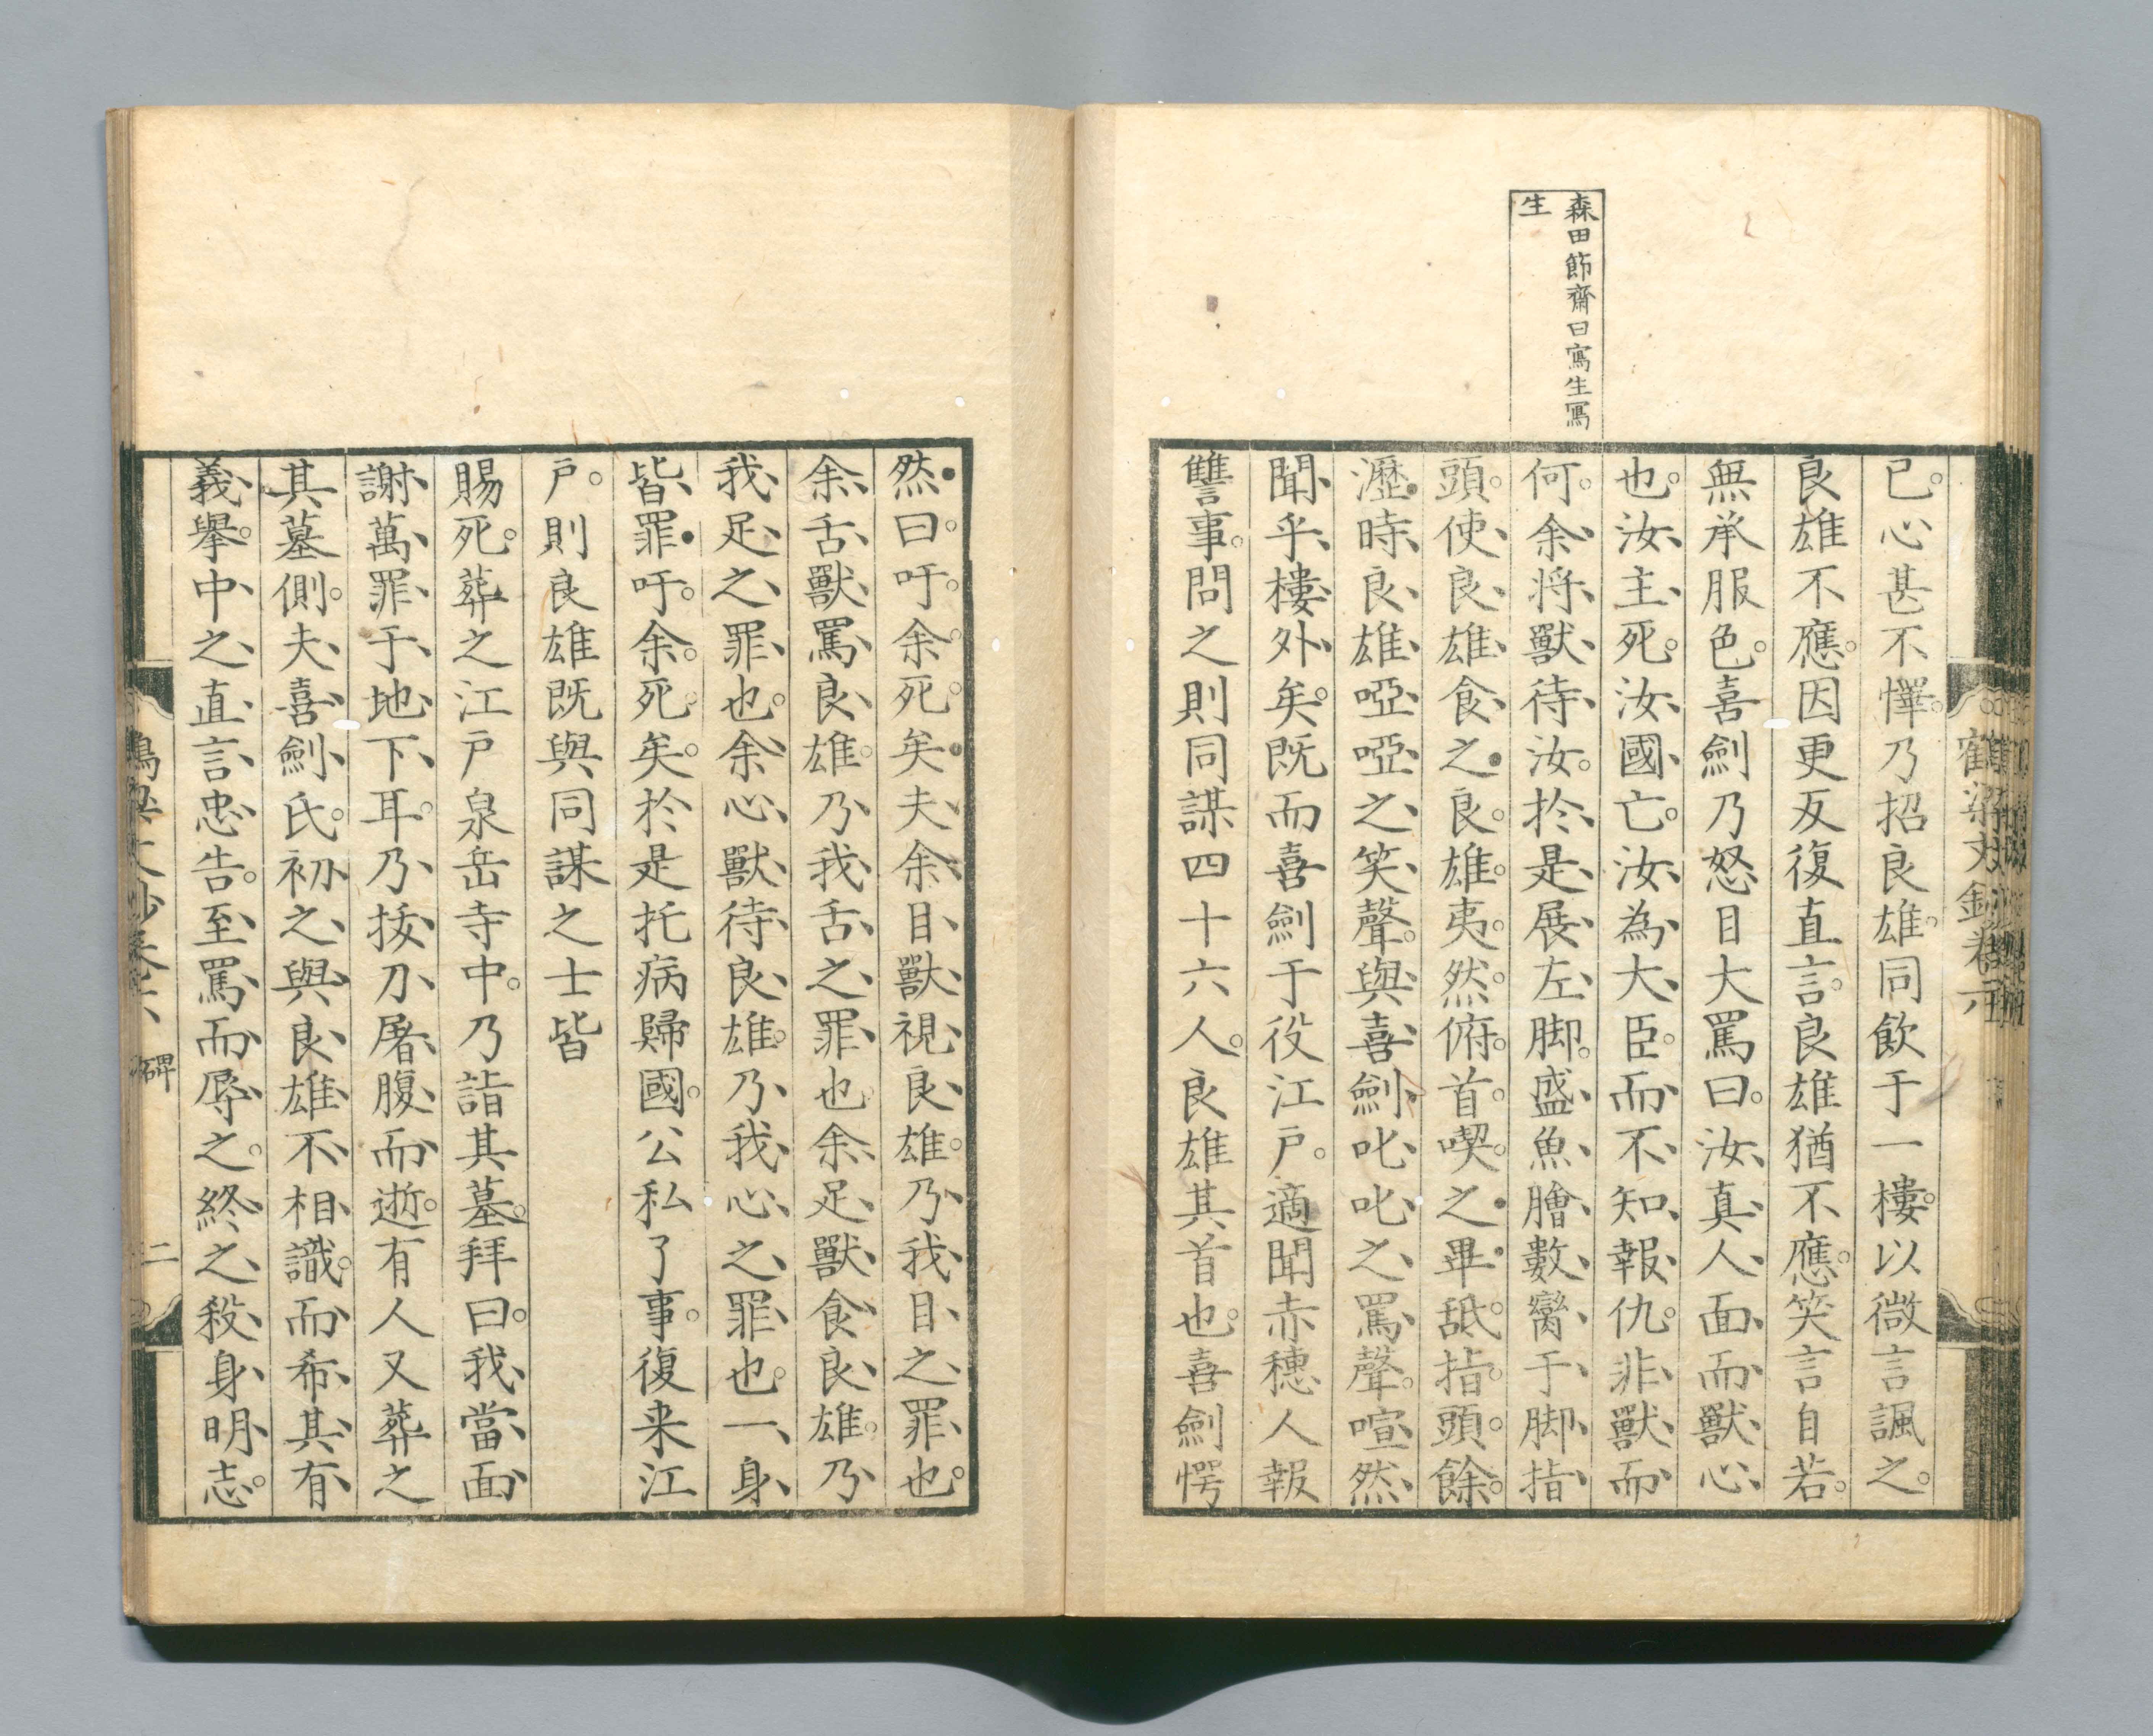 森田節齋曰寫生寫
生
已。心甚不懌。乃招良雄。同飲于一樓。以微言諷之。
良雄不應。因更反復直言。良雄猶不應。笑言自若。
無承服色。喜劍乃怒目大罵曰。汝、真、人、面、而、獸、心、
也。汝、主、死。汝、國、亡。汝、為、大、臣。而、不、知、報、仇。非、獸、而、
何。余、將、獸、待、汝。於、是、展、左、脚。盛、魚、膾、數、臠、于、脚、指、
頭。使、良、雄、食、之。良。雄。夷。然。俯。首。喫。之。畢。舐。指。頭。餘。
瀝。時、良、雄、啞、啞、之、笑、聲。與、喜、劍、叱、叱、之、罵、聲。喧、然、
聞、乎、樓、外、矣。既而喜劍于役江戶。適聞赤穗人報
讐事。問之則同謀四十六人。良雄其首也。喜劍愕
然。曰。吁。余。死。矣。夫、余、目、獸、視、良、雄。乃、我、目、之、罪、也。
余、舌、獸、罵、良、雄。乃、我、舌、之、罪、也。余、足、獸、食、良、雄。乃、
我、足、之、罪、也。余、心、獸、待、良、雄。乃、我、心、之、罪、也。一、身、
皆、罪。吁。余。死。矣。於是托病歸國。公私了事。復来江
戶。則良雄既與同謀之士皆
賜死。葬之江戶泉岳寺中。乃詣其墓。拜曰。我、當、面、
謝、萬、罪、于、地、下、耳。乃、拔、刀、屠、腹、而、逝。有人又葬之
其墓側。夫、喜、劍、氏。初、之、與、良、雄、不、相、識。而、希、其、有、
義、擧。中、之、直、言、忠、告。至、罵、而、辱、之。終、之、殺、身、明、志。
碑
二